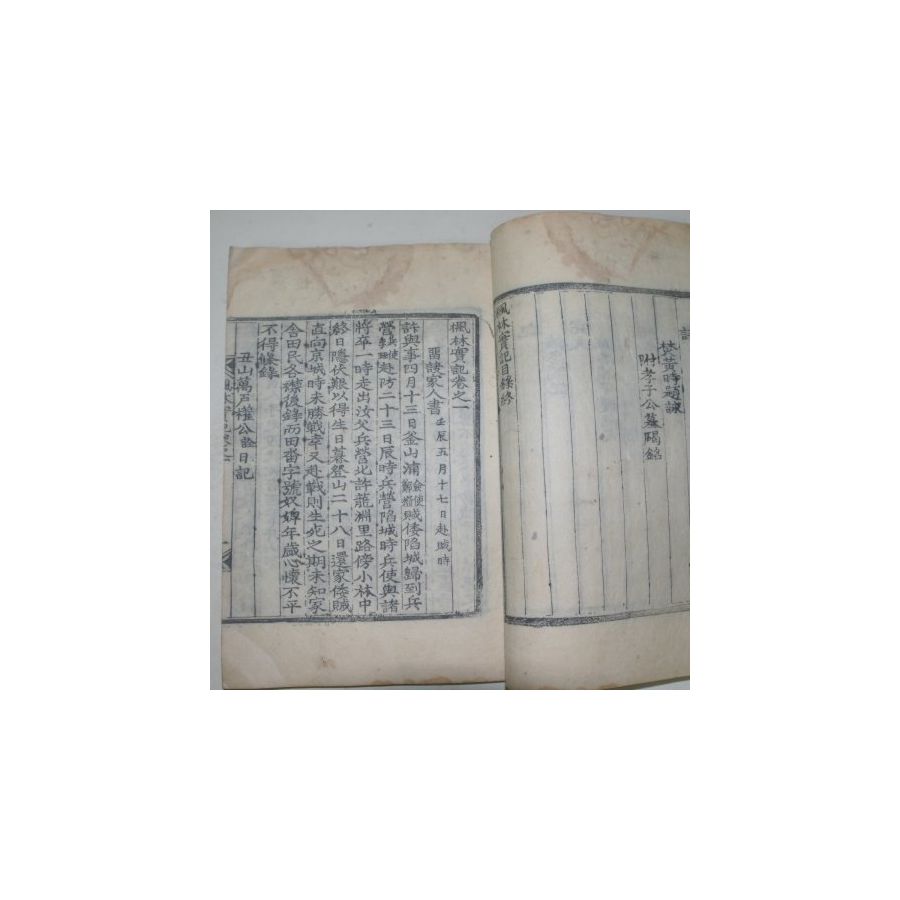 焚黃時題詠
附孝子公墓碣銘
楓林實記目錄終
楓林實記卷之一
留諸家人書 壬辰五月十七日赴賊時
許與事四月十三日釜山浦僉使鄭撥賊倭陷城歸到兵
營兵使赴防二十三日辰時兵營陷城時兵使與諸
將卒一時走出汝父兵營北許龍淵里路傍小林中
終日隱伏艱以得生日暮登山二十八日還家倭賊
直向京城時未勝戰幸又赴戰則生死之期未知家
舍田民各襟後錄而田畓字號奴婢年歲心懷不平
不得條錄
丑山萬戶權公詮日記